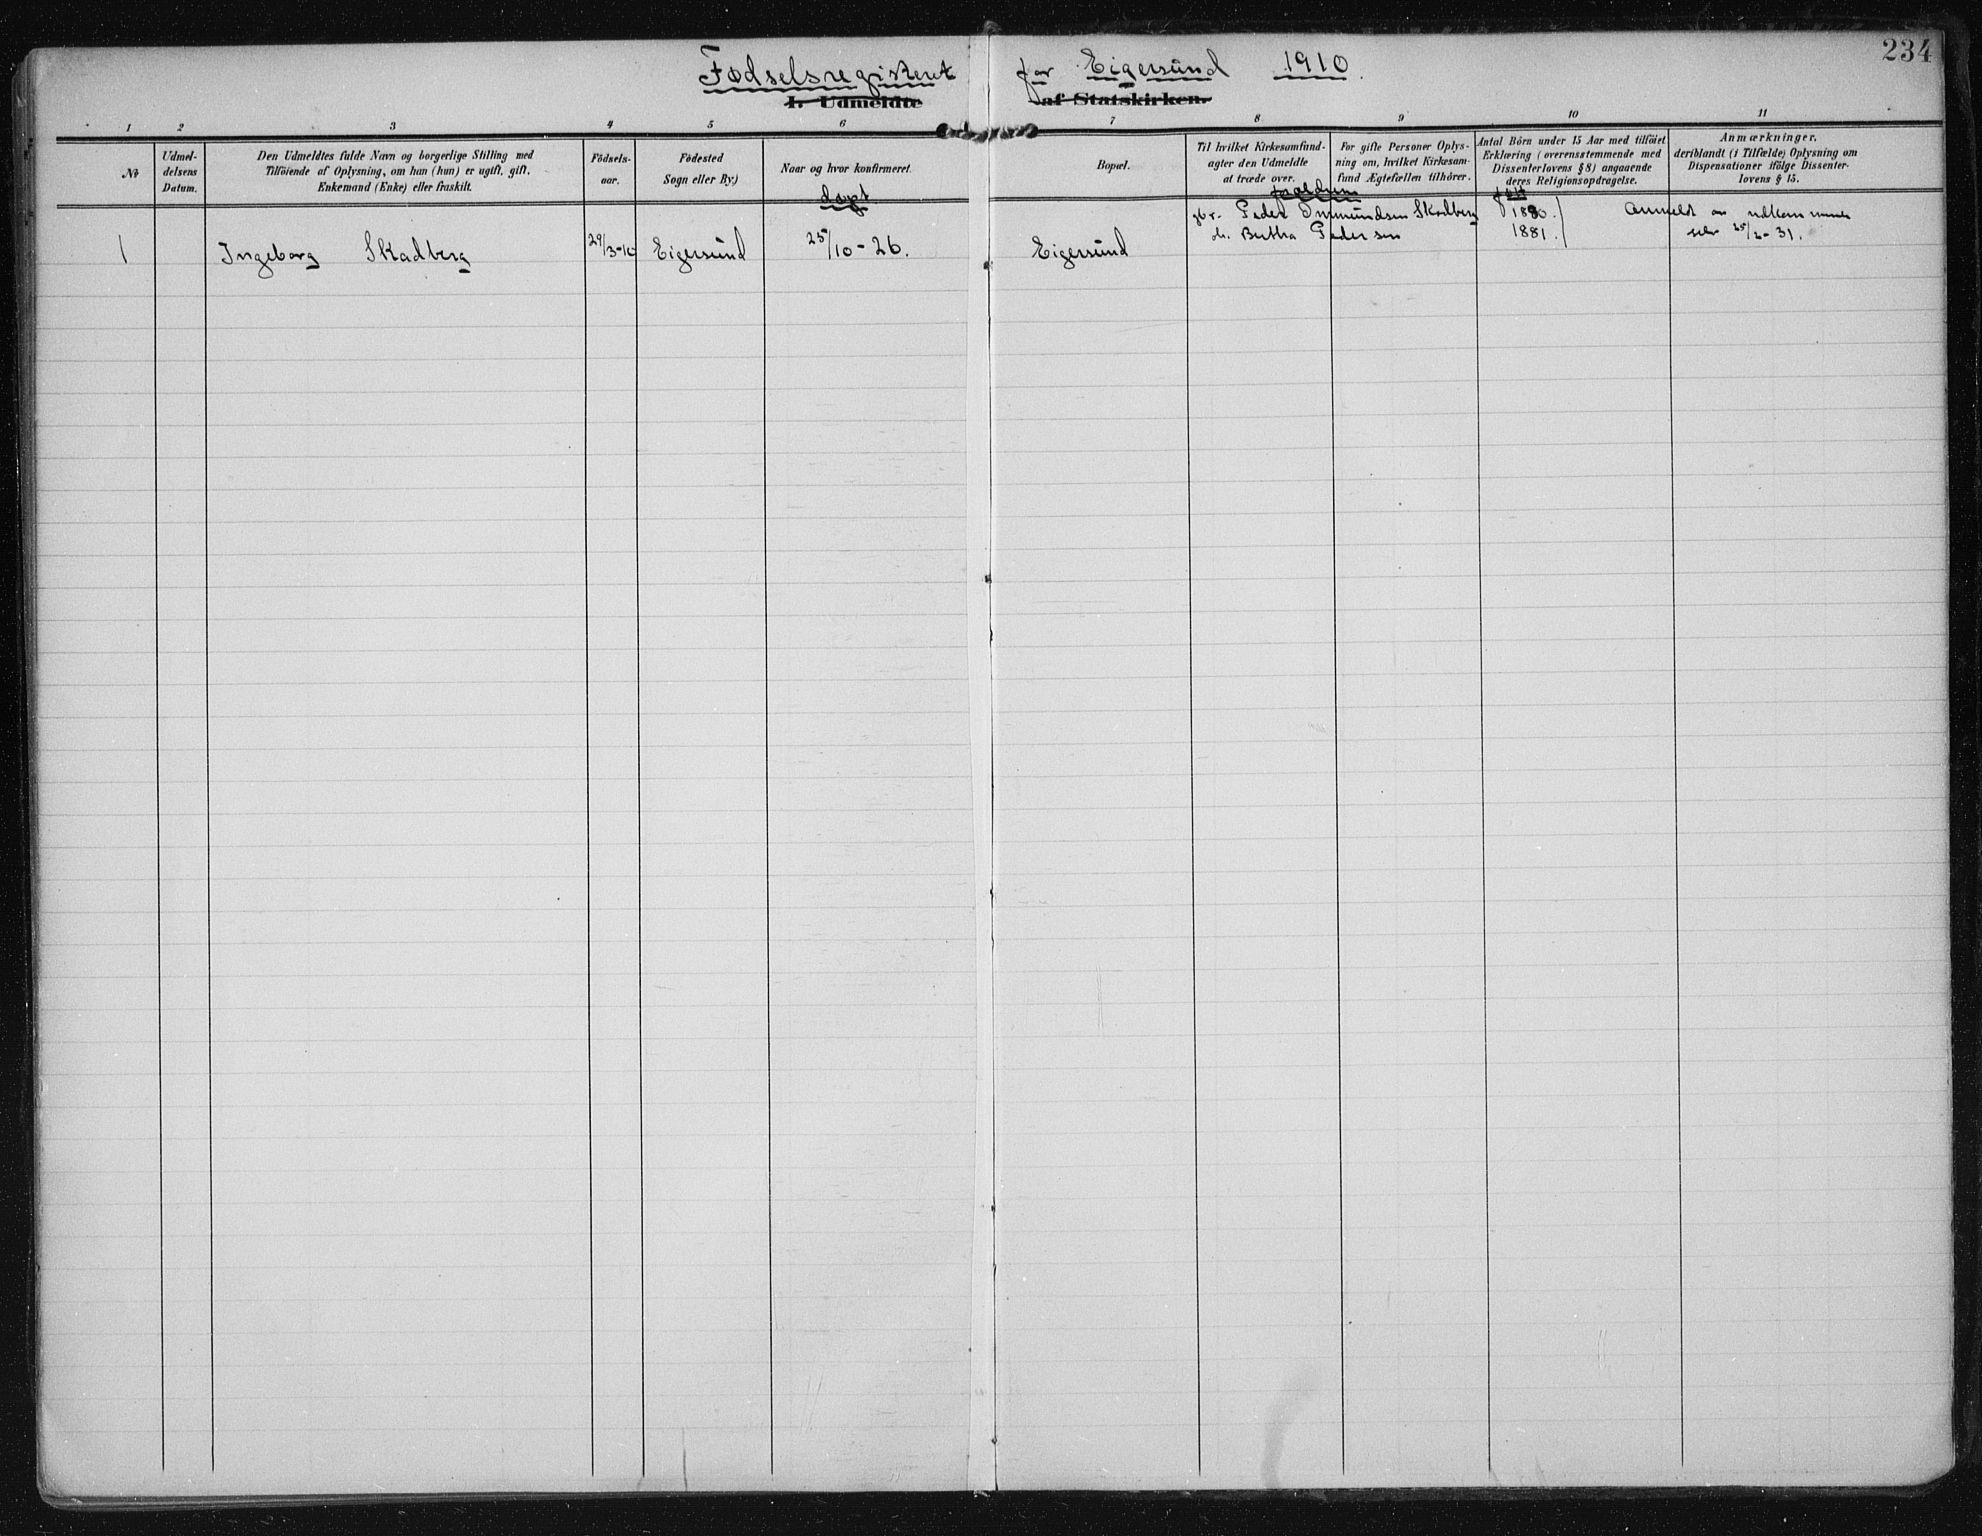 234
Fødselsregisteret for Eigersund 1910.
1. Udmeldte af Statskirken.
1 2 3 4 5 6 7 8 9 10 11
No
Udmel-
delsens
Datum.
Den Udmeldtes fulde Navn og borgerlige Stilling med
Tilföiende af Oplysning, om han (hun) er ugift, gift,
Enkemand (Enke) eller fraskilt.
Födsels-
aar.
Födested
Sogn eller By.)
Naar og hvor konfirmeret.
døpt
Bopæl.
Til hvilket Kirkesamfund-
agter den Udmeldte
at træde over.
foreldrene
For gifte Personer Oplys-
ning om, hvilket Kirkesam-
fund Ægtefællen tilhörer.
Antal Börn under 15 Aar med tilföiet
Erklæring (overensstemmende med
Dissenterlovens § 8) angaaende
deres Religionsopdragelse.
født
Anmærkninger.
deriblandt (i Tilfælde) Oplysning om
Dispensationer ifölge Dissenter-
lovens § 15.
1 Ingeborg Skadberg 29/3-10 Eigersund 25/10-26. Eigersund
Peder Ommundsen Skadberg 1880.
Bertha Pedersen 1881.
Anmeldt av vedkommende
selv 25/2-31.